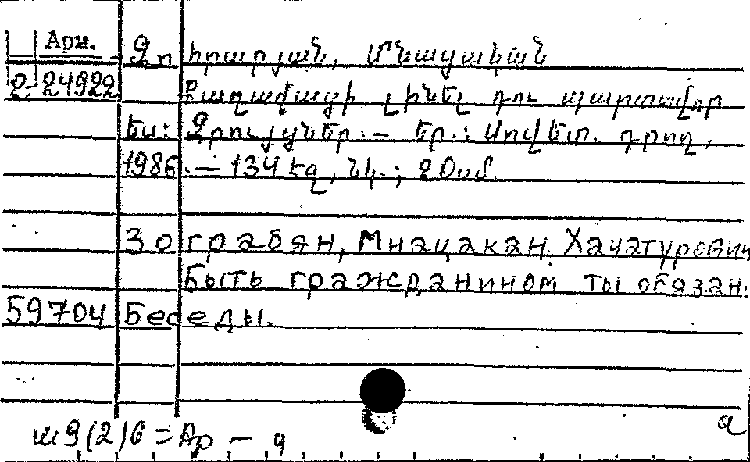 Арм.
2-24922
Զոհրաբյան, Մնացական
Քաղաքացի լինել դու պարտավոր
ես: Զրույցներ.— Եր.: Սովետ. գրող,
1986.— 134 էջ, նկ.; 20սմ.
Зограбян, Мнацакан Хачатурович
Быть гражданином ты обязан.
59704 Беседы.
ш9(2)6=Ар — 9
а